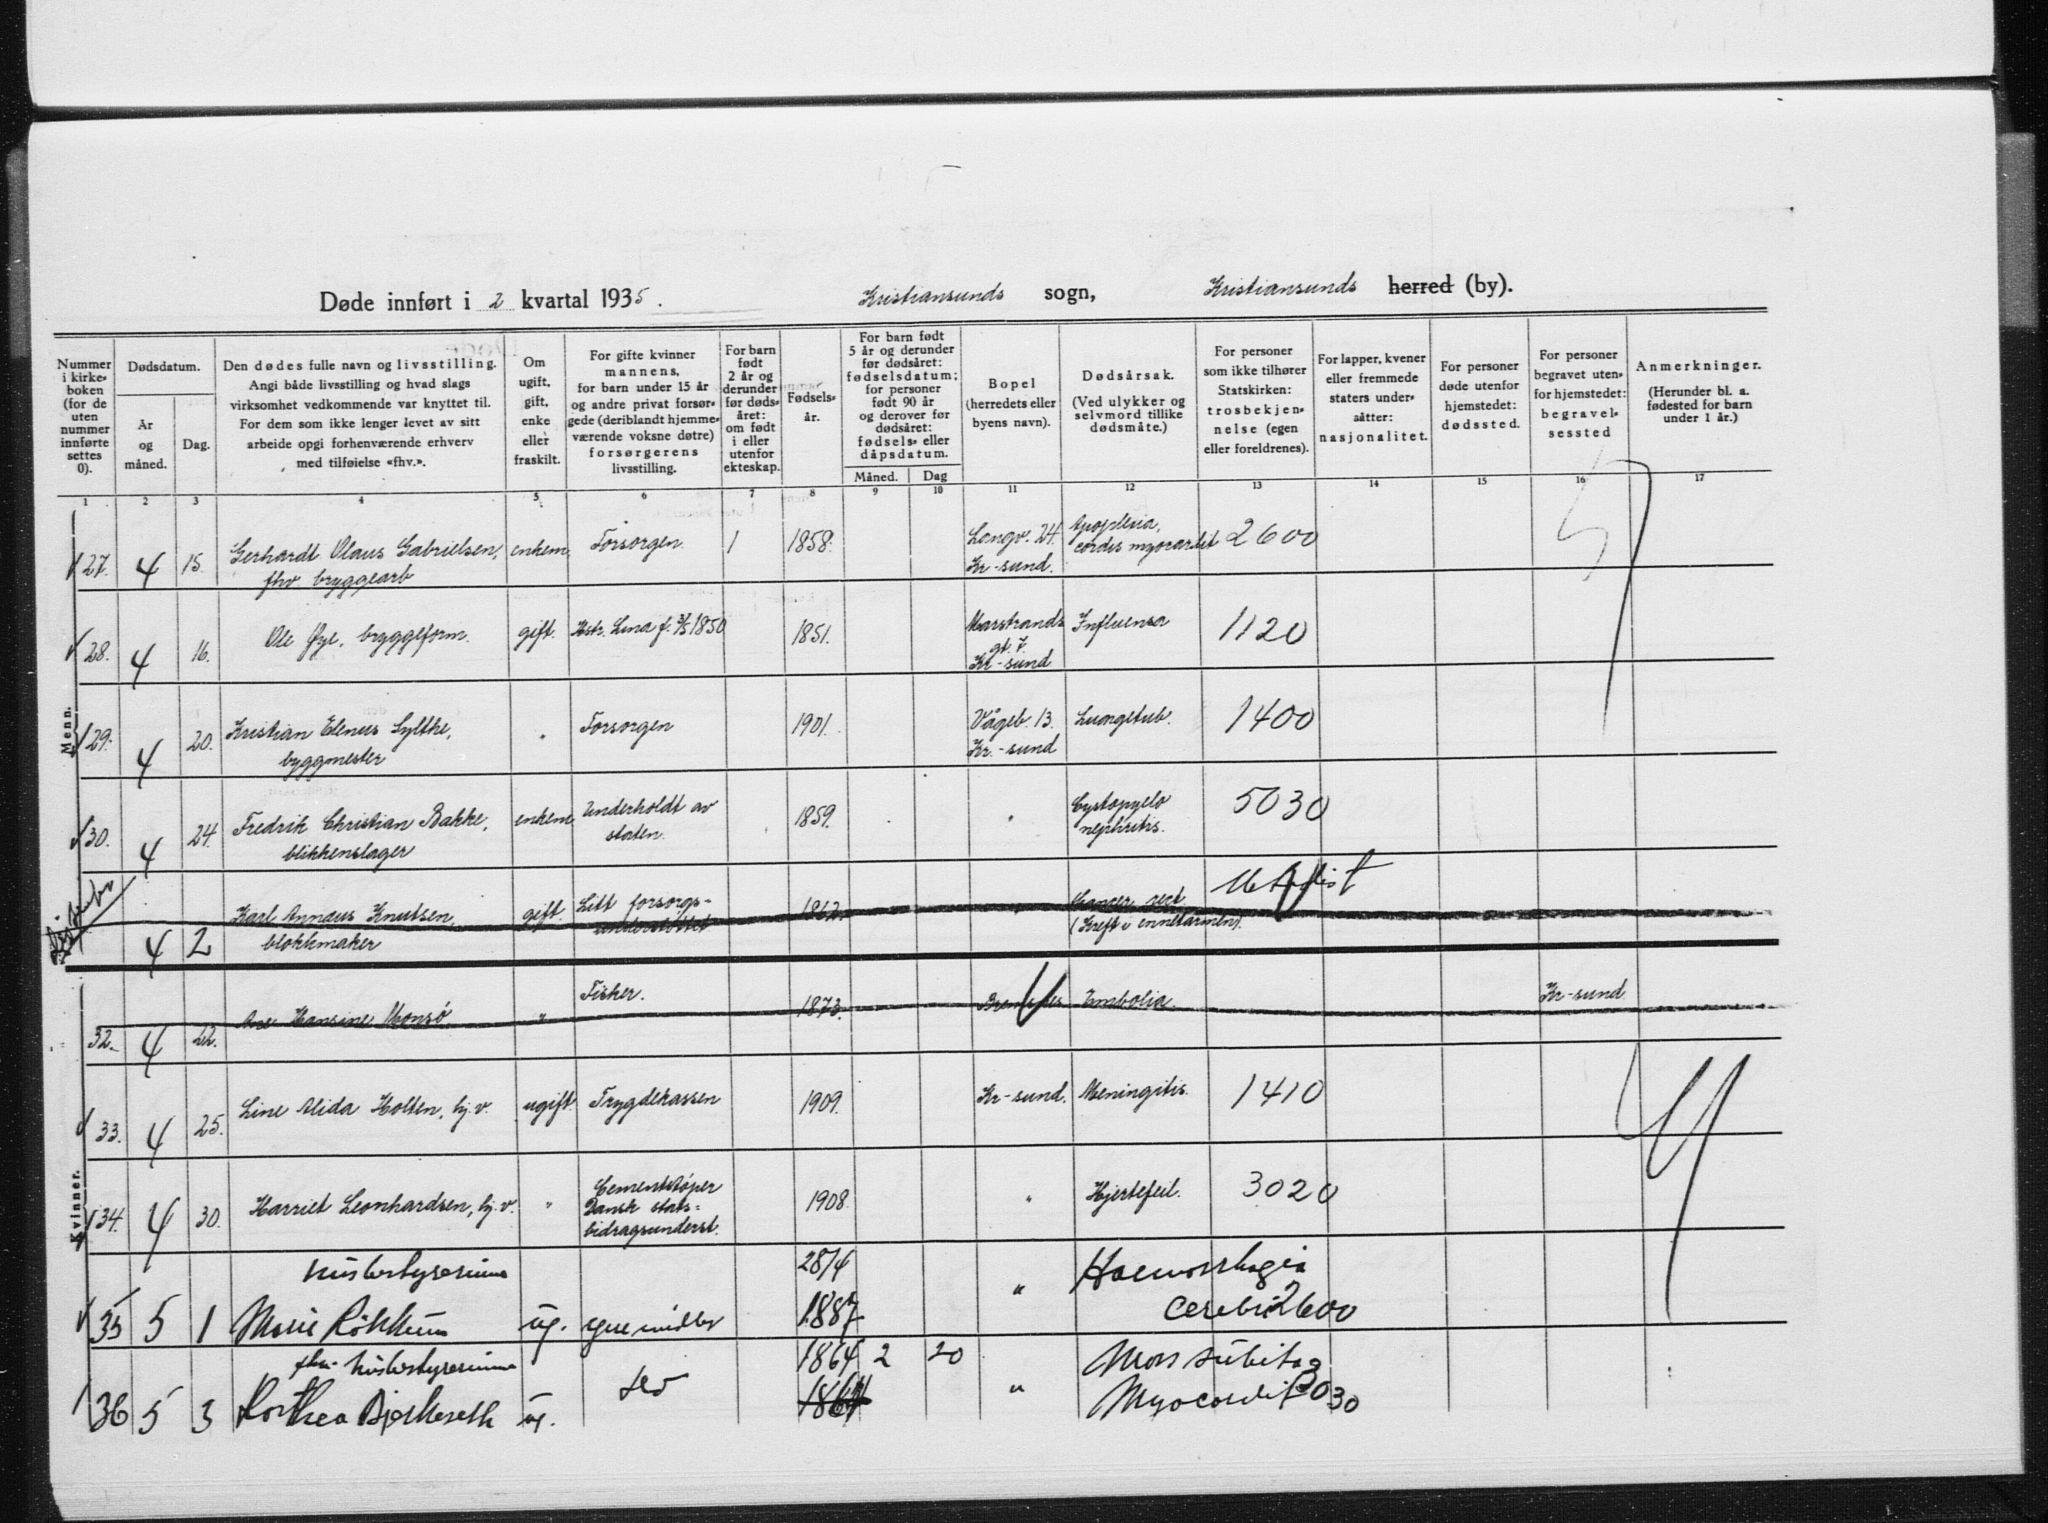 Døde innført i 2 kvartal 1935. Kristiansunds sogn, Kristiansunds herred (by).
Nummer i kirke-boken (for de uten nummer innførte settes 0).
Dødsdatum.
År og måned.
Dag.
Den dødes fulle navn og livsstilling.
Angi både livsstilling og hvad slags
virksomhet vedkommende var knyttet til.
For dem som ikke lenger levet av sitt
arbeide opgi forhenværende erhverv
med tilføielse «fhv.».
Om ugift, gift, enke eller fraskilt.
For gifte kvinner
mannens,
for barn under 15 år
og andre privat forsør-
gede (deriblandt hjemme-
værende voksne døtre)
forsørgerens
livsstilling.
For barn
født
2 år og
derunder
før døds-
året:
om født
i eller
utenfor
ekteskap.
Fødsels-
år.
For barn født
5 år og derunder
før dødsåret:
fødselsdatum;
for personer
født 90 år
og derover før
dødsåret:
fødsels- eller
dåpsdatum.
Måned. Dag
Bopel
(herredets eller
byens navn).
Dødsårsak.
(Ved ulykker og
selvmord tillike
dødsmåte.)
For personer
som ikke tilhører
Statskirken:
trosbekjen-
nelse (egen
eller foreldrenes).
For lapper, kvener
eller fremmede
staters under-
såtter:
nasjonalitet.
For personer
døde utenfor
hjemstedet:
dødssted.
For personer
begravet uten-
for hjemstedet:
begravel-
sessted
Anmerkninger.
(Herunder bl. a.
fødested for barn
under 1 år.)
1 2 3 4 5 6 7 8 9 10 11 12 13 14 15 16 17
Menn.
27. 4 15. Gerhardt Olaus Gabrielsen, enkem. Forsorgen. 1 1858. Langv. 24. Apoplexia, 2600
fhv. bryggearb Kr-sund. cordis myocardit
28. 4 16. Ole Øye, bryggeform. gift. Hstr. Lina f. 3/5 1850 1851. Marstrands Influensa 1120
gt. 7.
Kr-sund
29. 4 20. Kristian Elenus Sylthe, " Forsorgen 1901. Vågeb. 13. Lungetub. 1400
byggmester Kr.-sund
30. 4 24. Fredrik Christian Bakke, enkem. Underholdt av 1859. " Cystopyelo 5030
blikkenslager staten. nephritis.
4 2 Karl Annæus Knutsen, gift. Litt forsorgs- 1862. " Cancer rect.
blokkmaker understøttet (Kreft i endetarmen).
Kvinner.
32. 4 22. Ane Hansine Monsø " Fisker. 1873. Bremsnes Embolia. Kr-sund
33. 4 25. Line Alida Holten, hj. v. ugift Trygdekassen 1909. Kr-sund. Meningitis. 1410
34. 4 30. Harriet Leonhardsen, hj. v. " Cementstøper 1908 " Hjertefeil. 3020
Dansk stats-
bidragsunderst.
husbestyrerinne 28/4 Haemorrhagia
35 5 1 Marie Røkkum ug. egne midler 1887 " cerebri 2600
fhv. husbestyrerinne 1864 2 20 Mors subita
36 5 3 Dorthea Bjerkeseth ug. 1864 " Myocordit 3030